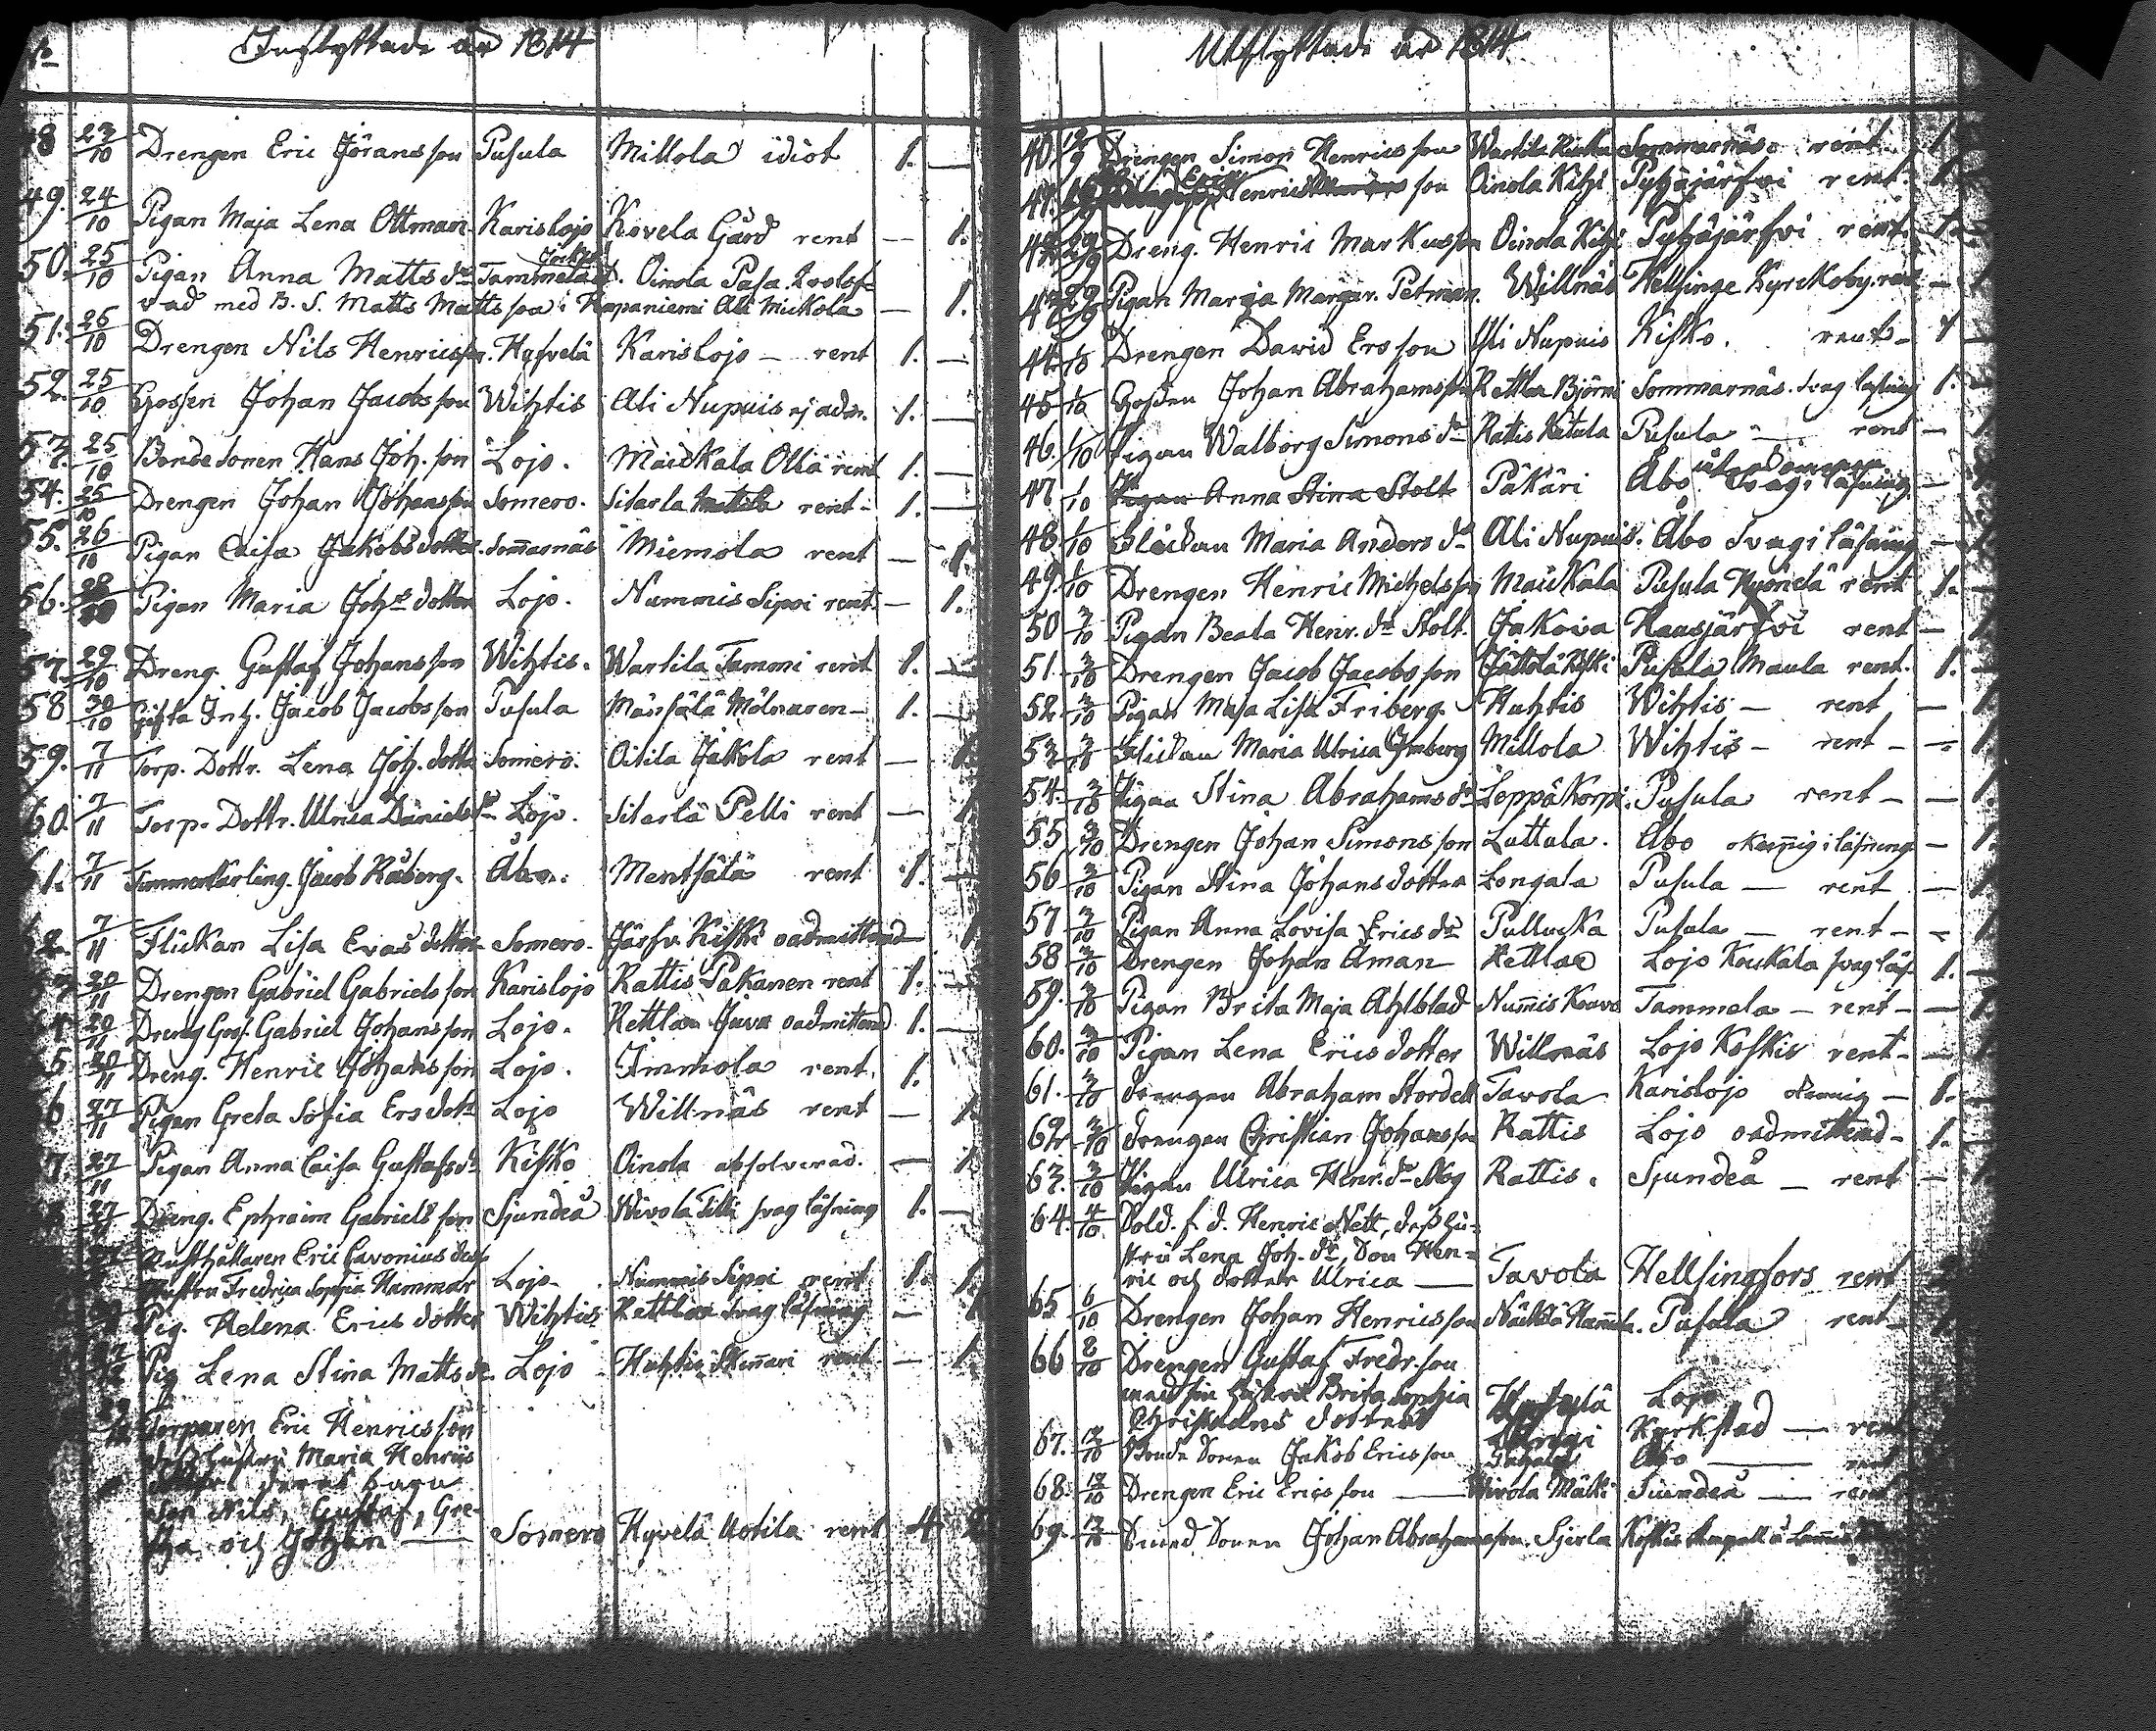 Inflyttade år 1814
48 23/10 Drengen Eric Jöransson Pusula Millola idiot 1. —
49. 24/10 Pigan Maja Lena Ottman Karislojo Kovela Gård rent — 1.
50. 25/10 Pigan Anna Matts dr Tammela Oinola Pasa
vad med B. S. Matts Mattsson i Rapaniemi Ali Mickola — 1.
51. 25/10 Drengen Nils Henricsson Hyfvelä Karislojo — rent 1. —
52. 25/10 Gossen Johan Jacobsson Wihtis Ali Nupuis ej adm. 1. —
53. 25/10 Bondesonen Hans Joh. son Lojo. Maikkala Ollä rent 1. —
54. 25/10 Drengen Johan Johansson Somero. Sitarla rent - 1. —
55. 26/10 Pigan Caisa Jakobsdotter Som̄arnäs Miemola rent — 1.
56. 28/10 Pigan Maria Johs dotter Lojo. Nummis Sipoi rent. — 1.
57. 29/10 Dreng. Gustaf Johansson Wihtis. Wartila Tamoni rent 1. —
58 30/10 Gifta Inh. Jacob Jacobsson Pusula Mänsälä Mölnaren — 1. —
59. 7/11 Torp. Dottr. Lena Joh. dotter Somero. Oitila Jakola rent — 1.
60. 7/11 Torp. Dottr. Ulrica Daniels dr Lojo. Sitarlä Pelli rent — 1.
1. 7/11 Timmerkarling. Jacob Råberg. Åbo. Mentsälä rent 1. —
2. 7/11 Flickan Lisa Evasdotter Somero. Järfv. Kiski oadmitterad 1
20/11 Drengen Gabriel Gabrielsson Karislojo Rattis Pakanen rent 1. —
4 20/11 Dreng Gos. Gabriel Johansson Lojo. Rettlaa Juva oadmitterad 1. —
5 20/11 Dreng. Henric Johansson Lojo. Immola rent. 1.
6 27/11 Pigan Greta Sofia Ersdotr Lojo Willnäs rent — 1.
7 27/11 Pigan Anna Caisa Gustafs dr Kisko Oinola absolverad. — 1.
27/11 Dreng. Ephraim Gabrielsson Sjundeå Wivola Tilli svag läsning 1. —
Rusthållaren Eric Cavonius dess
Hustru Fredrica Sophia Hammar Lojo. Nummis Sipoi rent 1. 1.
Pig. Helena Ericsdotter Wihtis Rettlaa svag läsning — 1
Pig Lena Stina Matts dr. Lojo Huhtis rent — 1.
Torparen Eric Henricsson
dess hustru Maria Henrics
dotter deras barn
son Nils, Gustaf, Gre-
tha och Johan — Somero Hyvelä Uotila rent 4 2
Utflyttade år 1814
40. 12/9 Drengen Simon Henricsson Wartila Sommarnäs. rent 1.
41. Henric son Oinola Kihi Pyhäjärfvi rent. 1.
42. Dreng. Henric Markusson Oinola Kihi Pyhäjärfvi rent. 1.
43. Pigan Marja Margar. Petman. Willnäs Hellsinge Kyrckoby. rent —
44. 1/10 Drengen David Ersson Uli Nupuis Kisko. rent - 1
45 1/10 Gossen Johan Abrahamsson Rettlaa Björni Sommarnäs. svag läsning 1. —
46. 1/10 Pigan Walborg Simons dr Rattis Ketula Pusula — rent —
47 1/10 Pigan Anna Stina Stolt Päkäri Åbo utan Domenen Svag i läsning —
48. 1/10 Flickan Maria Anders dr Ali Nupuis. Åbo Svag i läsning —
49. 1/10 Drengen Henric Michelsson Maikkala Pusula Hyönelä rent 1. —
50 3/10 Pigan Beata Henr. dr Stolt. Jakova Hausjärfvi rent —
51. 3/10 Drengen Jacob Jacobsson Jättölä Kiski Pusula Maula rent. 1. —
52. 3/10 Pigan Maja Lisa Friberg. Huhtis Wihtis — rent —
53 3/10 Flickan Maria Ulrica Imberg Millola Wihtis — rent - —
54. 3/10 Pigan Stina Abrahams dr Leppäkorpi. Pusula rent - — 1.
55 3/10 Drengen Johan Simonsson Luttula. Åbo okun̄ig i läsning — 1.
56 3/10 Pigan Stina Johansdotter Longala Pusula — rent —
57 3/10 Pigan Anna Lovisa Erics dr Pullucka Pusula — rent - —
58 3/10 Drengen Johan Åman Rettlaa Lojo Koukala svag läs. 1. —
59. 3/10 Pigan Brita Maja Ahlblad Num̄is Kouvo Tammela — rent - —
60. 3/10 Pigan Lena Ericsdotter Willnäs Lojo Koskis rent - —
61. 3/10 Drengen Abraham Stordell Tavola Karislojo okunnig — 1. —
62. 3/10 Drengen Christian Johansson Rattis Lojo oadmitterad - 1. —
63. 3/10 Pigan Ulrica Henr. dr Skog Rattis. Sjundeå — rent —
64. 4/10 Sold. f. d. Henric Nett, dess hu-
stru Lena Joh. dr, Son Hen-
ric och dotter Ulrica — Tavola Hellsingfors rent
65 6/10 Drengen Johan Henricsson Pusula rent
66 8/10 Drengen Gustaf Fredr. son
med sin hustru Brita Sophia
Christians dotter Hyrfvelä Lojo
67. 12/10 Bonde Sonen Jakob Ericsson Åbo — rent
68. 12/10 Drengen Eric Ericsson — Wivola Mälki Siundeå — rent
69. 12/10 Johan Abrahamsson. Sjerla Koskis